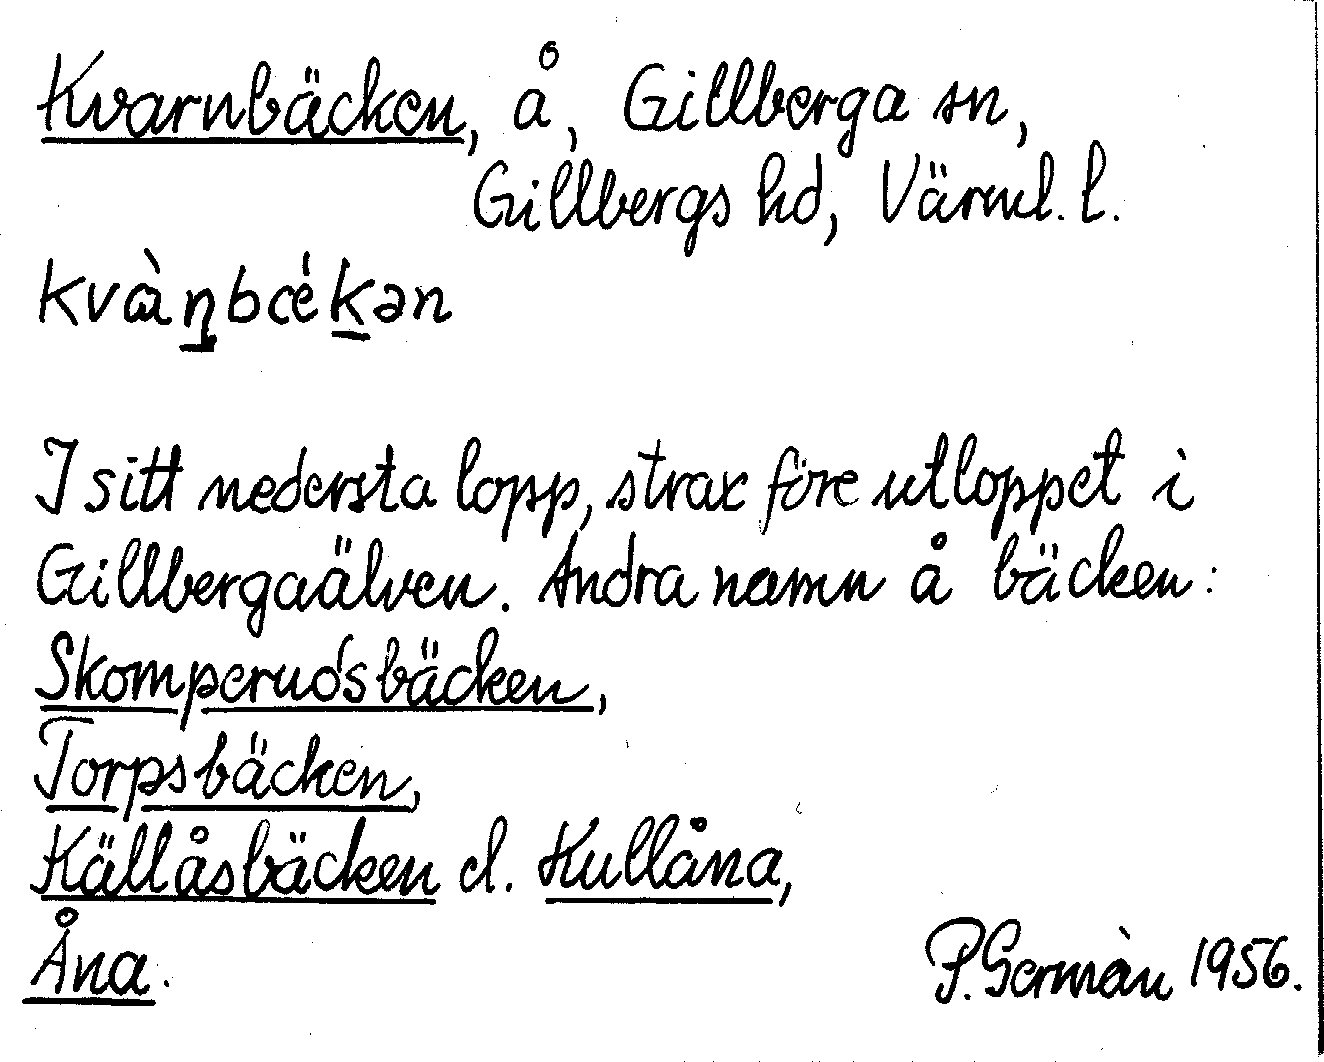 Kvarnbäcken, å, Gillberga sn,
Gillbergs hd, Värml. l.
kvàṉbǽḵən
I sitt nedersta lopp, strax före utloppet i
Gillbergaälven. Andra namn å bäcken:
Skomperudsbäcken,
Torpsbäcken,
Källåsbäcken el. Kullåna,
Åna.
P. Germàn 1956.